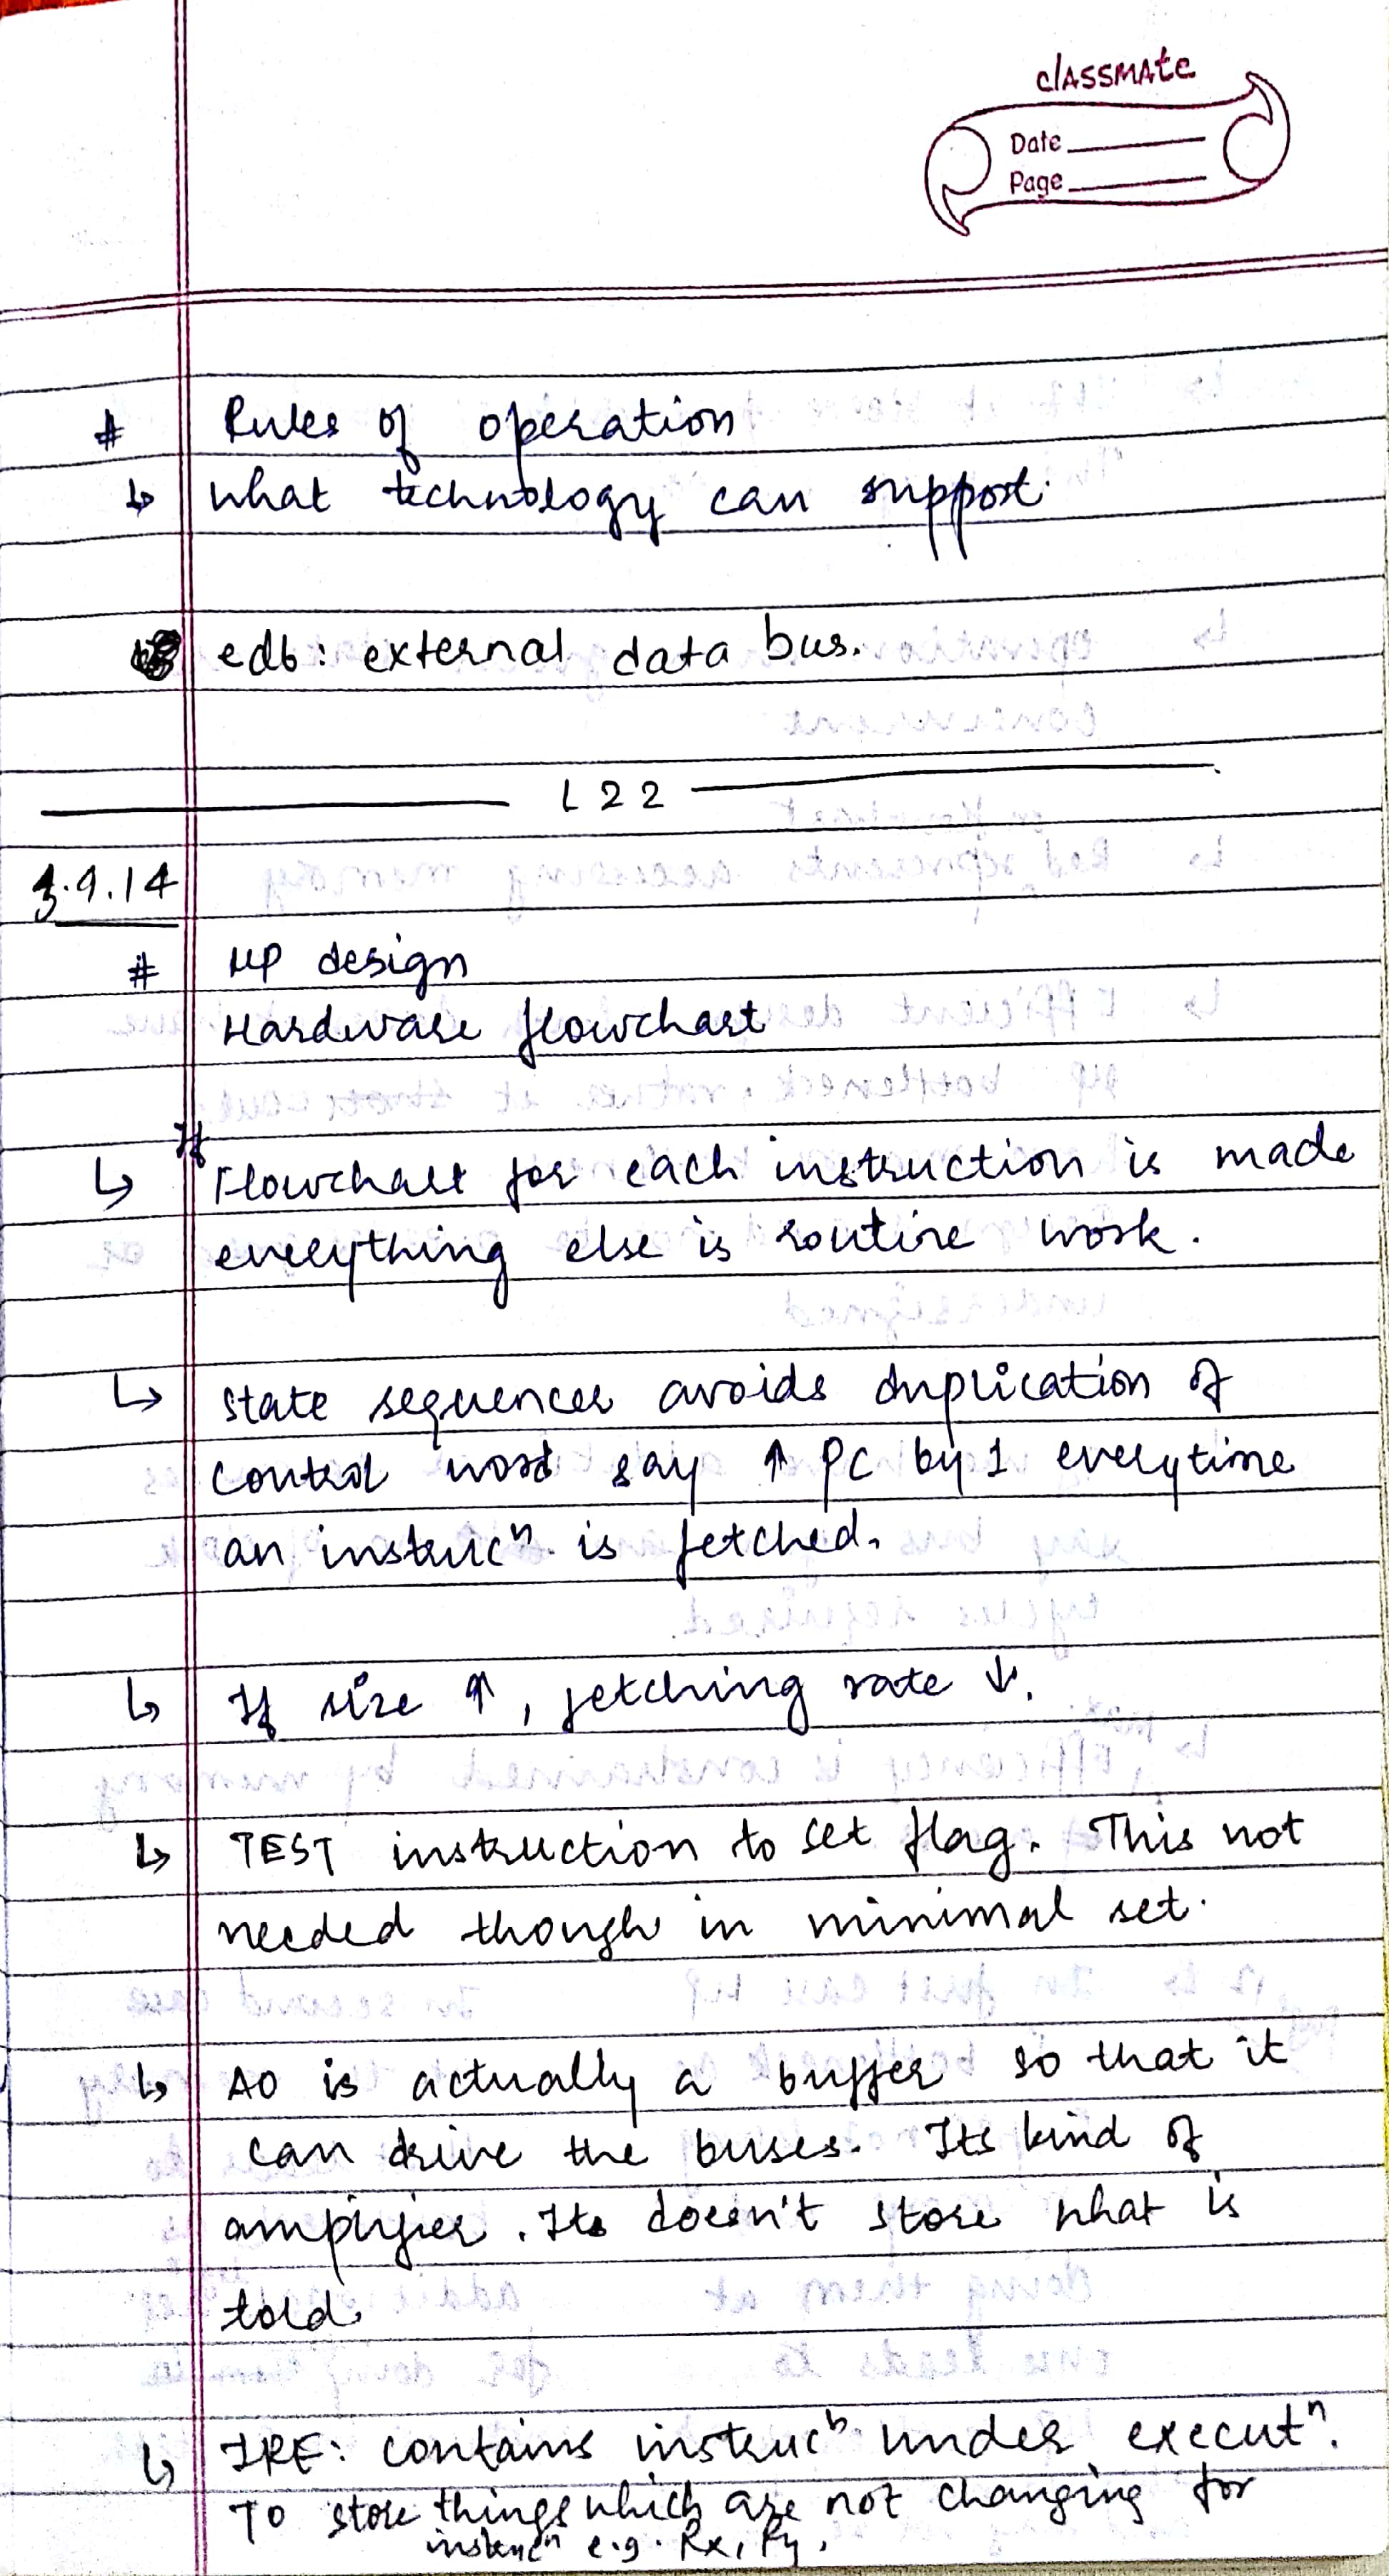 classmate
Date
Page
# Rules of operation
↳ what technology can support.
edb: external data bus.
L22
3.9.14
# μP design
Hardware flowchart
↳ If Flowchart for each instruction is made
everything else is routine work.
↳ State sequencer avoids duplication of
control word say ↑ PC by 1 everytime
an instrucⁿ is fetched.
↳ If size ↑, fetching rate ↓.
↳ TEST instruction to set flag. This not
needed though in minimal set.
↳ AO is actually a buffer so that it
can drive the buses. Its kind of
amplifier. Its doesn't store what is
told
↳ IRE: contains instrucⁿ under executⁿ.
To store things which are not changing for
instrucⁿ e.g. Rx, Ry.